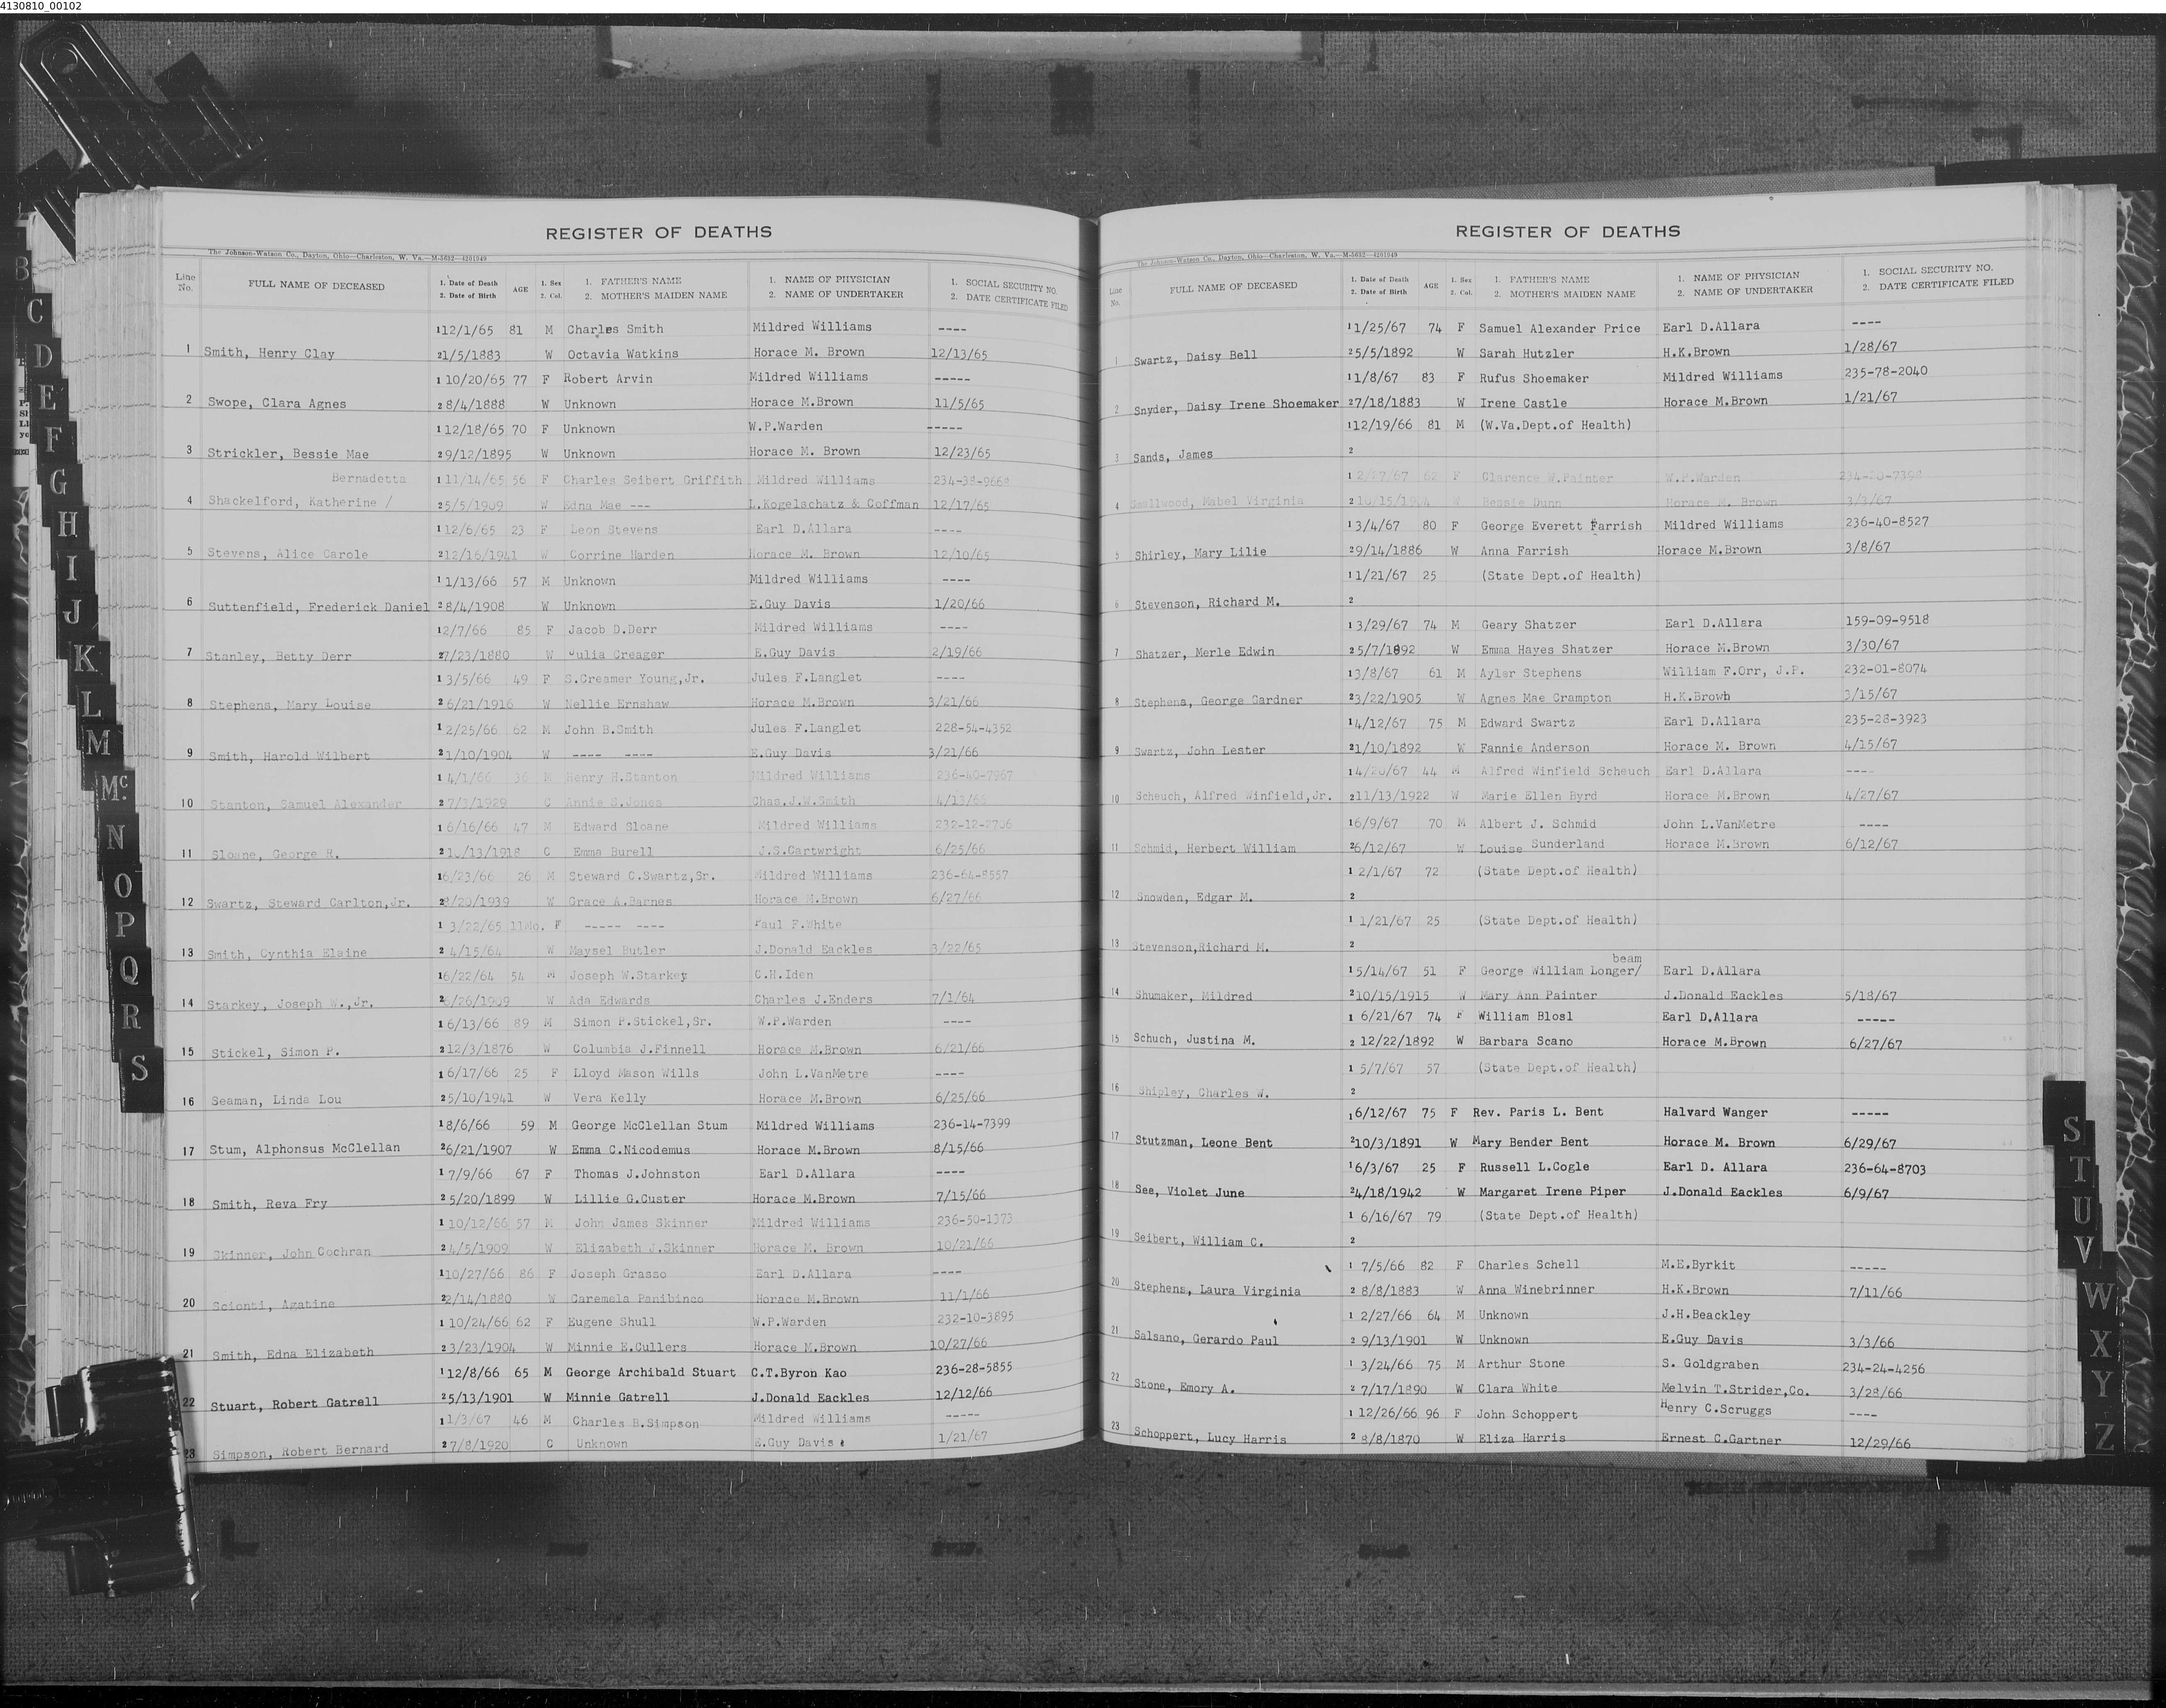 4130810_00102
REGISTER OF DEATHS
The Johnson-Watson Co., Dayton, Ohio—Charleston, W. Va.—M-5632—4201949
Line No. FULL NAME OF DECEASED 1. Date of Death 2. Date of Birth AGE 1. Sex 2. Col. 1. FATHER'S NAME 2. MOTHER'S MAIDEN NAME 1. NAME OF PHYSICIAN 2. NAME OF UNDERTAKER 1. SOCIAL SECURITY NO. 2. DATE CERTIFICATE FILED
1 12/1/65 81 M Charles Smith Mildred Williams ----
1 Smith, Henry Clay 2 1/5/1883 W Octavia Watkins Horace M. Brown 12/13/65
1 10/20/65 77 F Robert Arvin Mildred Williams -----
2 Swope, Clara Agnes 2 8/4/1888 W Unknown Horace M.Brown 11/5/65
1 12/18/65 70 F Unknown W.P.Warden -----
3 Strickler, Bessie Mae 2 9/12/1895 W Unknown Horace M. Brown 12/23/65
Bernadetta 1 11/14/65 56 F Charles Seibert Griffith Mildred Williams 234-38-9668
4 Shackelford, Katherine / 2 5/5/1909 W Edna Mae --- L.Kogelschatz & Coffman 12/17/65
1 12/6/65 23 F Leon Stevens Earl D.Allara ----
5 Stevens, Alice Carole 2 12/16/1941 W Corrine Harden Horace M. Brown 12/10/65
1 1/13/66 57 M Unknown Mildred Williams ----
6 Suttenfield, Frederick Daniel 2 8/4/1908 W Unknown E.Guy Davis 1/20/66
1 2/7/66 85 F Jacob D.Derr Mildred Williams ----
7 Stanley, Betty Derr 2 7/23/1880 W Julia Creager E.Guy Davis 2/19/66
1 3/5/66 49 F S.Creamer Young,Jr. Jules F.Langlet ----
8 Stephens, Mary Louise 2 6/21/1916 W Nellie Ernshaw Horace M.Brown 3/21/66
1 2/25/66 62 M John B.Smith Jules F.Langlet 228-54-4352
9 Smith, Harold Wilbert 2 1/10/1904 W ---- ---- E.Guy Davis 3/21/66
1 4/1/66 36 M Henry H.Stanton Mildred Williams 236-40-7967
10 Stanton, Samuel Alexander 2 7/3/1929 C Annie S.Jones Chas.J.W.Smith 4/13/66
1 6/16/66 47 M Edward Sloane Mildred Williams 232-12-2706
11 Sloane, George R. 2 10/13/1918 C Emma Burell J.S.Cartwright 6/25/66
1 6/23/66 26 M Steward C.Swartz,Sr. Mildred Williams 236-64-8557
12 Swartz, Steward Carlton,Jr. 2 /20/1939 W Grace A.Barnes Horace M.Brown 6/27/66
1 3/22/65 11Mo. F ----- ---- Paul F.White
13 Smith, Cynthia Elaine 2 4/15/64 W Maysel Butler J.Donald Eackles 3/22/65
1 6/22/64 54 M Joseph W.Starkey C.H.Iden
14 Starkey, Joseph W.,Jr. 2 6/26/1909 W Ada Edwards Charles J.Enders 7/1/64
1 6/13/66 89 M Simon P.Stickel,Sr. W.P.Warden ----
15 Stickel, Simon P. 2 12/3/1876 W Columbia J.Finnell Horace M.Brown 6/21/66
1 6/17/66 25 F Lloyd Mason Wills John L.VanMetre ----
16 Seaman, Linda Lou 2 5/10/1941 W Vera Kelly Horace M.Brown 6/25/66
1 8/6/66 59 M George McClellan Stum Mildred Williams 236-14-7399
17 Stum, Alphonsus McClellan 2 6/21/1907 W Emma C.Nicodemus Horace M.Brown 8/15/66
1 7/9/66 67 F Thomas J.Johnston Earl D.Allara ----
18 Smith, Reva Fry 2 5/20/1899 W Lillie G.Custer Horace M.Brown 7/15/66
1 10/12/66 57 M John James Skinner Mildred Williams 236-50-1373
19 Skinner, John Cochran 2 4/5/1909 W Elizabeth J.Skinner Horace M. Brown 10/21/66
1 10/27/66 86 F Joseph Grasso Earl D.Allara ----
20 Scionti, Agatine 2 2/14/1880 W Caremela Panibinco Horace M.Brown 11/1/66
1 10/24/66 62 F Eugene Shull W.P.Warden 232-10-3895
21 Smith, Edna Elizabeth 2 3/23/1904 W Minnie E.Cullers Horace M.Brown 10/27/66
1 12/8/66 65 M George Archibald Stuart C.T.Byron Kao 236-28-5855
22 Stuart, Robert Gatrell 2 5/13/1901 W Minnie Gatrell J.Donald Eackles 12/12/66
1 1/3/67 46 M Charles B.Simpson Mildred Williams -----
23 Simpson, Robert Bernard 2 7/8/1920 C Unknown E.Guy Davis 1/21/67
REGISTER OF DEATHS
The Johnson-Watson Co., Dayton, Ohio—Charleston, W. Va.—M-5632—4201949
Line No. FULL NAME OF DECEASED 1. Date of Death 2. Date of Birth AGE 1. Sex 2. Col. 1. FATHER'S NAME 2. MOTHER'S MAIDEN NAME 1. NAME OF PHYSICIAN 2. NAME OF UNDERTAKER 1. SOCIAL SECURITY NO. 2. DATE CERTIFICATE FILED
1 1/25/67 74 F Samuel Alexander Price Earl D.Allara ----
1 Swartz, Daisy Bell 2 5/5/1892 W Sarah Hutzler H.K.Brown 1/28/67
1 1/8/67 83 F Rufus Shoemaker Mildred Williams 235-78-2040
2 Snyder, Daisy Irene Shoemaker 2 7/18/1883 W Irene Castle Horace M.Brown 1/21/67
1 12/19/66 81 M (W.Va.Dept.of Health)
3 Sands, James 2
1 2/27/67 62 F Clarence W.Painter W.P.Warden 234-20-7398
4 Smallwood, Mabel Virginia 2 10/15/1904 W Bessie Dunn Horace M. Brown 3/3/67
1 3/4/67 80 F George Everett Farrish Mildred Williams 236-40-8527
5 Shirley, Mary Lilie 2 9/14/1886 W Anna Farrish Horace M.Brown 3/8/67
1 1/21/67 25 (State Dept.of Health)
6 Stevenson, Richard M. 2
1 3/29/67 74 M Geary Shatzer Earl D.Allara 159-09-9518
7 Shatzer, Merle Edwin 2 5/7/1892 W Emma Hayes Shatzer Horace M.Brown 3/30/67
1 3/8/67 61 M Ayler Stephens William F.Orr, J.P. 232-01-8074
8 Stephens, George Gardner 2 3/22/1905 W Agnes Mae Crampton H.K.Brown 3/15/67
1 4/12/67 75 M Edward Swartz Earl D.Allara 235-28-3923
9 Swartz, John Lester 2 1/10/1892 W Fannie Anderson Horace M. Brown 4/15/67
1 4/20/67 44 M Alfred Winfield Scheuch Earl D.Allara ----
10 Scheuch, Alfred Winfield,Jr. 2 11/13/1922 W Marie Ellen Byrd Horace M.Brown 4/27/67
1 6/9/67 70 M Albert J. Schmid John L.VanMetre ----
11 Schmid, Herbert William 2 6/12/67 W Louise Sunderland Horace M.Brown 6/12/67
1 2/1/67 72 (State Dept.of Health)
12 Snowden, Edgar M. 2
1 1/21/67 25 (State Dept.of Health)
13 Stevenson,Richard M. 2
beam
1 5/14/67 51 F George William Longer/ Earl D.Allara
14 Shumaker, Mildred 2 10/15/1915 W Mary Ann Painter J.Donald Eackles 5/18/67
1 6/21/67 74 F William Blosl Earl D.Allara -----
15 Schuch, Justina M. 2 12/22/1892 W Barbara Scano Horace M.Brown 6/27/67
1 5/7/67 57 (State Dept.of Health)
16 Shipley, Charles W. 2
1 6/12/67 75 F Rev. Paris L. Bent Halvard Wanger -----
17 Stutzman, Leone Bent 2 10/3/1891 W Mary Bender Bent Horace M. Brown 6/29/67
1 6/3/67 25 F Russell L.Cogle Earl D. Allara 236-64-8703
18 See, Violet June 2 4/18/1942 W Margaret Irene Piper J.Donald Eackles 6/9/67
1 6/16/67 79 (State Dept.of Health)
19 Seibert, William C. 2
1 7/5/66 82 F Charles Schell M.E.Byrkit -----
20 Stephens, Laura Virginia 2 8/8/1883 W Anna Winebrinner H.K.Brown 7/11/66
1 2/27/66 64 M Unknown J.H.Beackley
21 Salsano, Gerardo Paul 2 9/13/1901 W Unknown E.Guy Davis 3/3/66
1 3/24/66 75 M Arthur Stone S. Goldgraben 234-24-4256
22 Stone, Emory A. 2 7/17/1890 W Clara White Melvin T.Strider,Co. 3/28/66
1 12/26/66 96 F John Schoppert Henry C.Scruggs ----
23 Schoppert, Lucy Harris 2 8/8/1870 W Eliza Harris Ernest C.Gartner 12/29/66
B
C
D
E
F
G
H
I
J
K
L
M
Mc.
N
O
P
Q
R
S
S
T
U
V
W
X
Y
Z